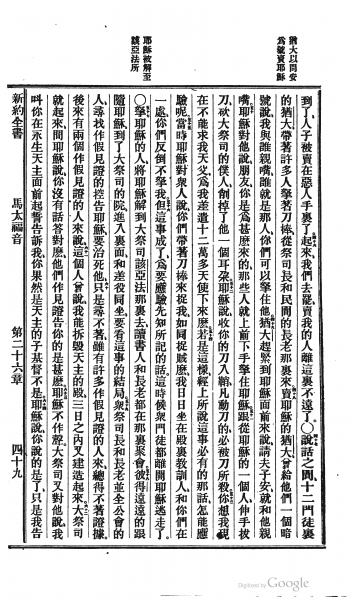 猶大以問安
為號賣耶穌
耶穌被解至
該亞法所
到了、人子被賣在惡人手裏了、起來、我們去罷、賣我的人離這裏不遠了、○說話之間、十二門徒裏
的猶大、帶著許多人、拿著刀棒、從祭司長和民間的長老那裏來、賣耶穌的猶大、曾給他們一個暗
號、說我與誰親嘴、誰就是那人、你們可以拏住他、猶大趕緊到耶穌面前來說、請夫子安、就和他親
嘴、耶穌對他說、朋友、你是爲甚麽來的、那些人就上前下手拏住耶穌、跟從耶穌的一個人、伸手拔
刀、砍大祭司的僕人、削掉了他一個耳朶、耶穌說、收你的刀入鞘、凡動刀的、必被刀所殺、你想我現
在不能求我天父、爲我差遣十二萬多天使下來麽、若是這樣、經上所說這事必有的那話、怎能應
驗呢、當時耶穌對衆人說、你們帶著刀棒來捉我、如同捉賊麽、我日日坐在殿裏教訓人、和你們在
一處、你們反倒不拏我、但這事成了、爲要應驗先知所記的話、這時候衆門徒都離開耶穌逃走了、
○拏耶穌的人、將耶穌解到大祭司該亞法那裏去、讀書人和長老都在那裏聚會、彼得遠遠的跟
隨耶穌、到了大祭司的院、進入裏面、和差役同坐、要看這事的結局、衆祭司長和長老並全公會的
人、尋找作假見證的控告耶穌、要治死他、只是尋不著、雖有許多作假見證的人來、總得不著證據、
後來有兩個作假見證的人來說、這個人曾說、我能拆毀天主的殿、三日之內、又建造起來、大祭司
就起來、問耶穌說、你沒有話答對麽、他們作見證告你的是甚麽、耶穌不作聲、大祭司又對他說、我
叫你在永生天主面前起誓、告訴我、你果然是天主的子基督不是、耶穌說、你說的是了、只是我告
新約全書　馬太福音　第二十六章　四十九
Digitized by Google